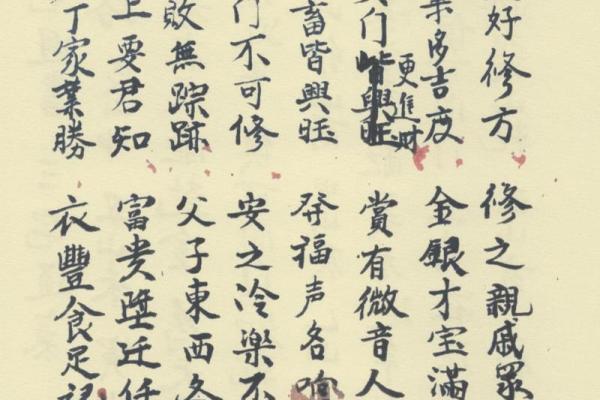 好修方 修之親戚眾
業多吉度 金銀才宝滿
门皆興旺 更進財 賞有微音人
畜皆興旺 發福声名响
门不可修 安之冷樂不
敗無踪跡 父子東西各
上要君知 富贵墜迁任
丁家業勝 衣豐食足